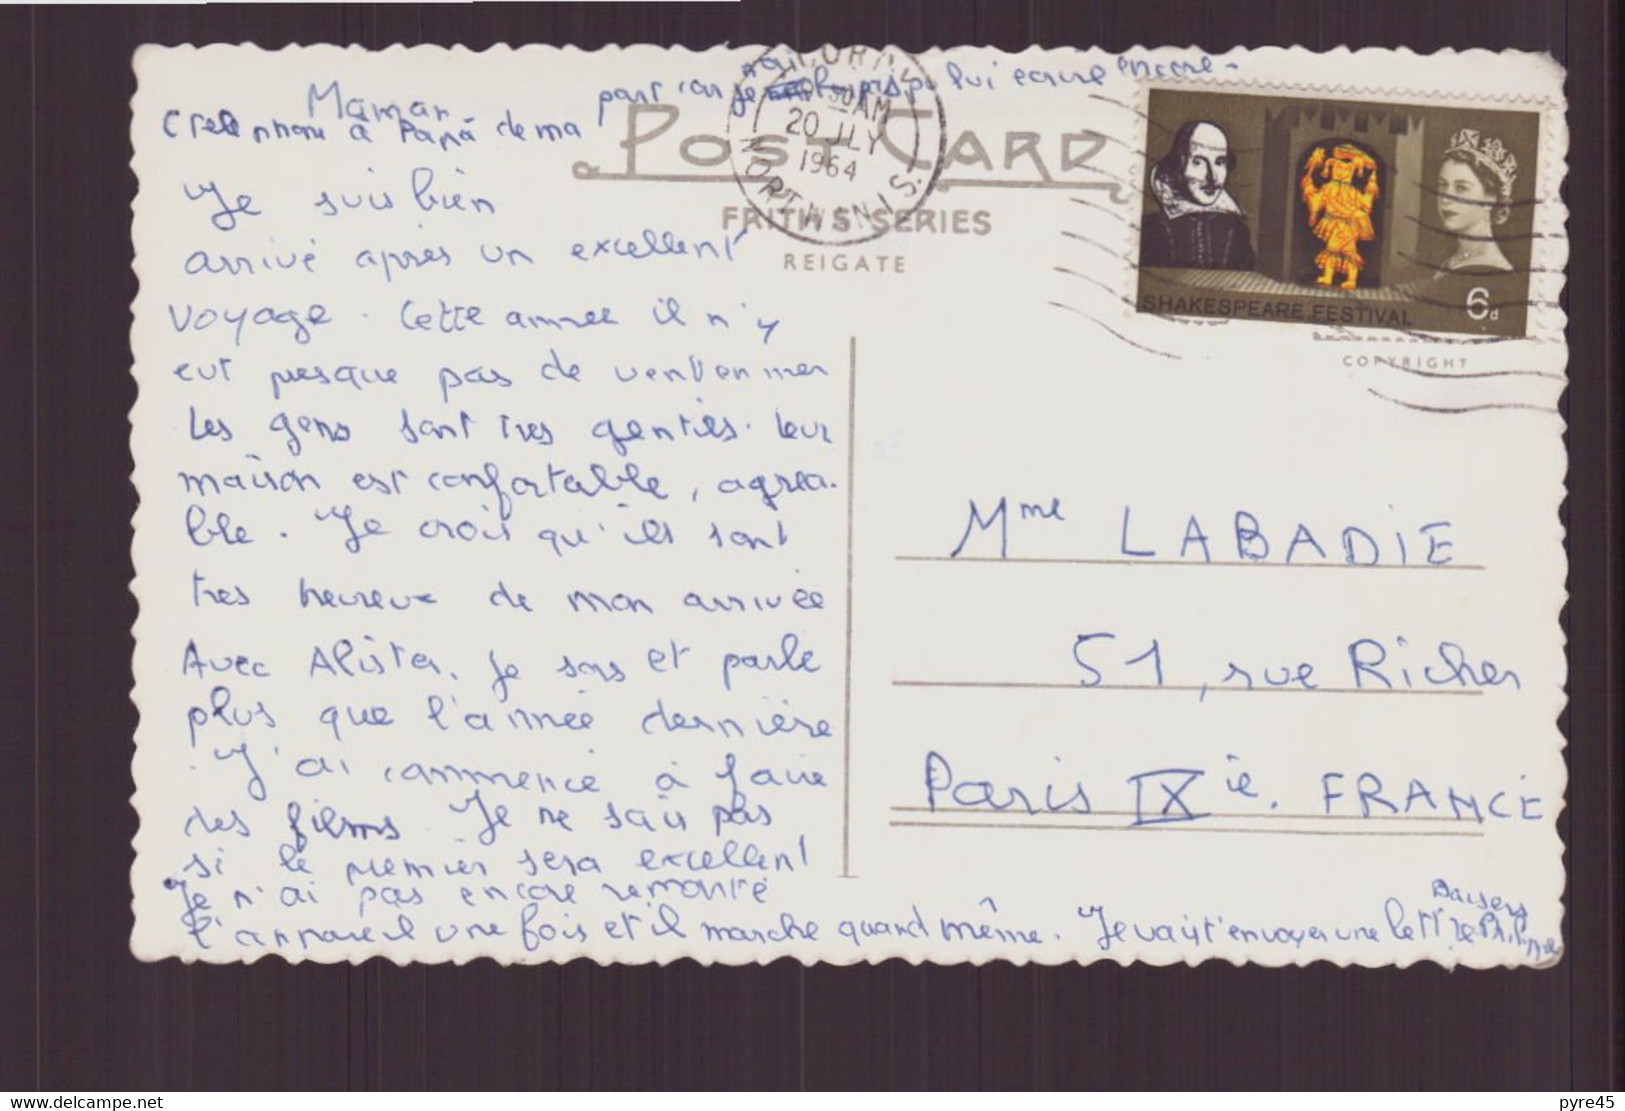 Maman
Telephone à Papa de ma part car je n'ai pas pu lui écrire encore -
Je suis bien
arrivé après un excellent
voyage. Cette année il n'y
eut presque pas de vent en mer
Les gens sont très gentils. leur
maison est confortable, agréa-
ble. Je crois qu'ils sont
très heureux de mon arrivée
Avec Alister. Je sors et parle
plus que l'année dernière
J'ai commencé à faire
des films. Je ne sais pas
si le premier sera excellent
Je n'ai pas encore remonté
l'appareil une fois et il marche quand même. Je vais t'envoyer une lettre. Baisers
POST CARD
FRITH'S SERIES
REIGATE
30 AM
20 JLY
1964
NORTHANTS.
SHAKESPEARE FESTIVAL 6d
COPYRIGHT
Mme LABADIE
51, rue Richer
Paris IXie. FRANCE
www.delcampe.net
pyre45